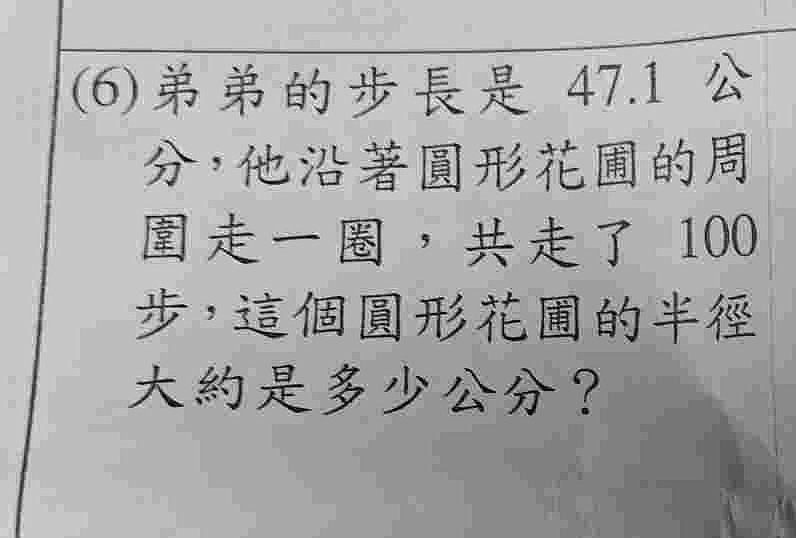 (6)弟弟的步長是 47.1 公
分，他沿著圓形花圃的周
圍走一圈，共走了 100
步，這個圓形花圃的半徑
大約是多少公分？